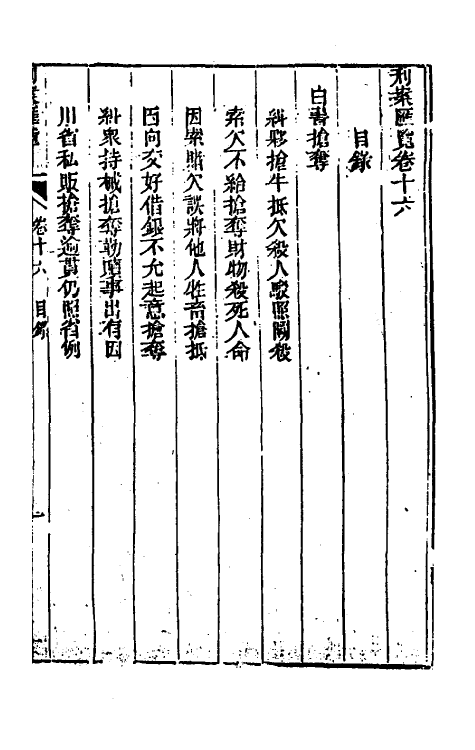 刑案匯覽卷十六
目錄
白晝搶奪
糾夥搶牛抵欠殺人駁照鬭殺
索欠不給搶奪財物殺死人命
因索賭欠誤將他人牲畜搶抵
因向交好借銀不允起意搶奪
糾衆持械搶奪勒贖事出有因
川省私販搶奪逾貫仍照省例
卷十六 目錄 一